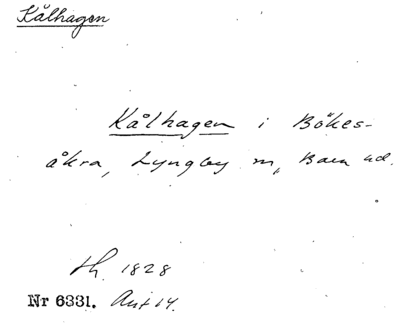 Kålhagen
Kålhagen i Bökes-
åkra, Lyngby m, Bara hd.
th. 1828
Nr 6331. Ant 14.